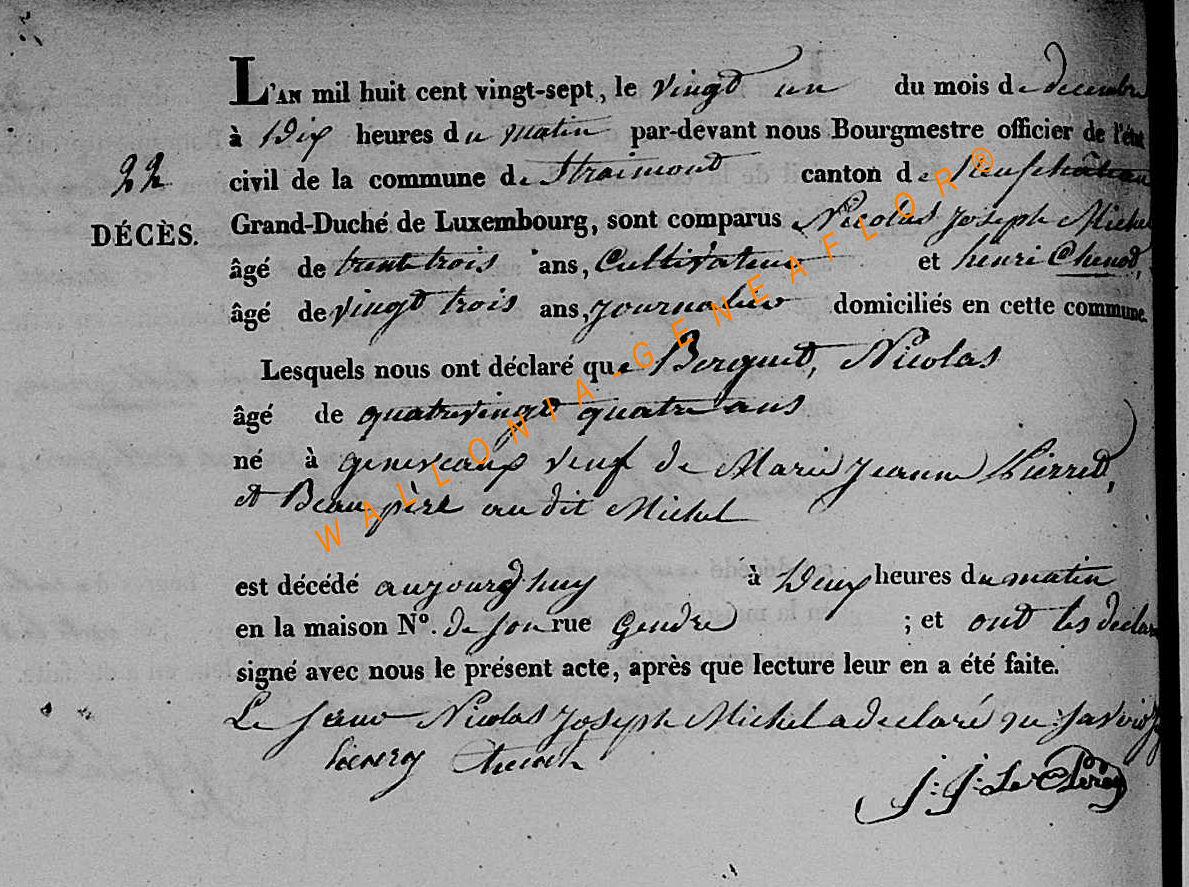 L'AN mil huit cent vingt-sept, le vingt un du mois de decembre
à Dix heures du matin par-devant nous Bourgmestre officier de l'état
22
civil de la commune de Straimont canton de Neufchâteau
DÉCÈS.
Grand-Duché de Luxembourg, sont comparus Nicolas Joseph Michel
âgé de trente trois ans, Cultivateur et henri Chenot,
âgé de vingt trois ans, journalier domiciliés en cette commune.
Lesquels nous ont déclaré que Borquet, Nicolas
âgé de quatrevingt quatre ans
né à veuf de Marie Jeanne Pierret,
et Beau père au dit Michel
est décédé aujourd'huy à Deux heures du matin
en la maison N°. de son rue Gendre ; et ont les declar
signé avec nous le présent acte, après que lecture leur en a été faite.
Le Nicolas Joseph Michel a declaré ne savoir
henry
J: J: Le Clercq
WALLONIA-GENEAFLOR®